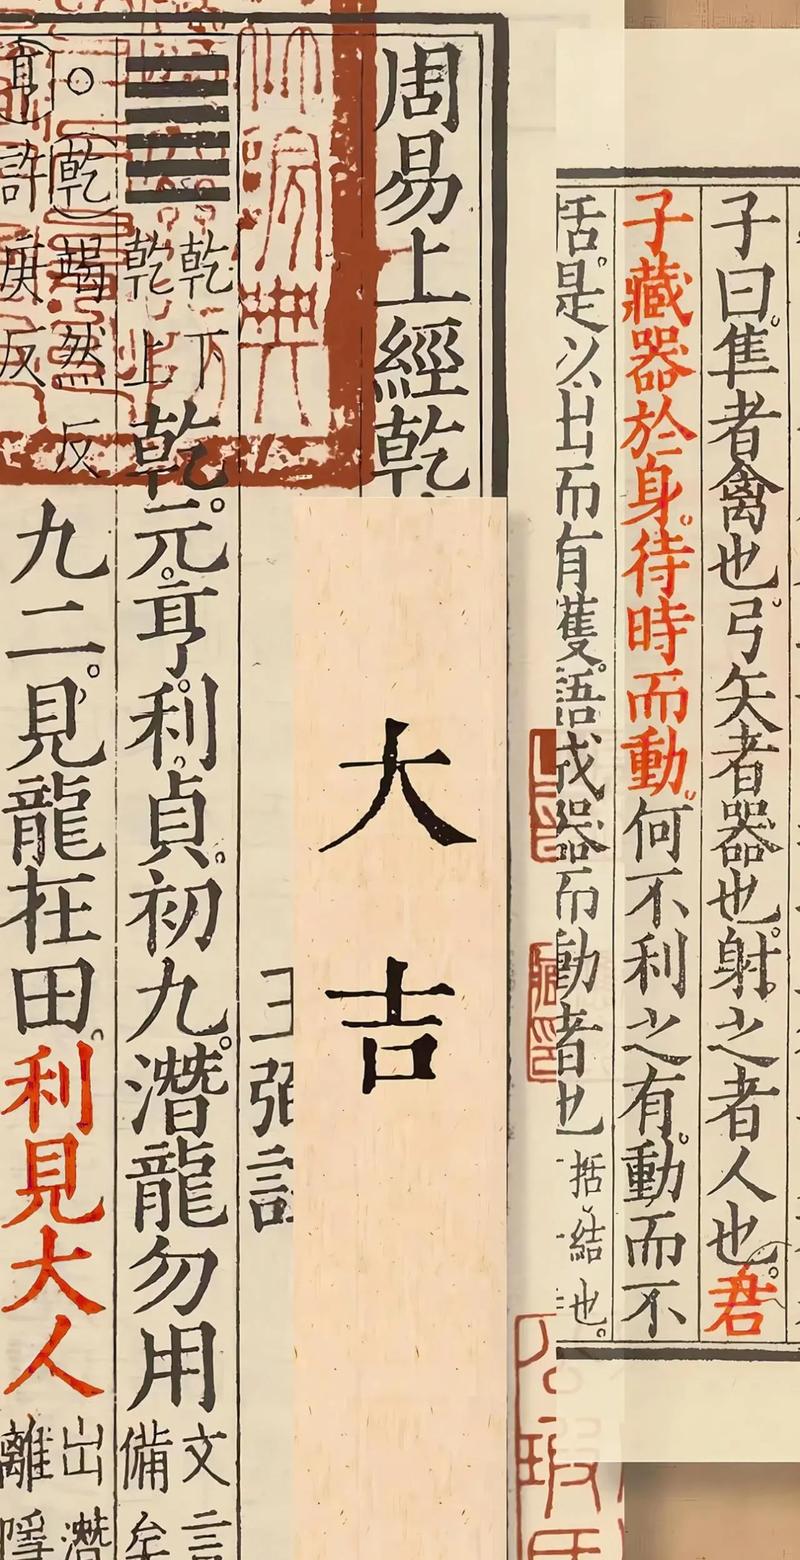 子曰隼者禽也弓矢者器也射之者人也君
子藏器於身待時而動何不利之有動而不
括是以出而有獲語成器而動者也
括結也
周易上經乾
王弼註
乾下
乾上
乾元亨利貞初九潛龍勿用
文言
備矣
乾竭然反
亨許庚反
九二見龍在田利見大人
出潛
離隱
大吉